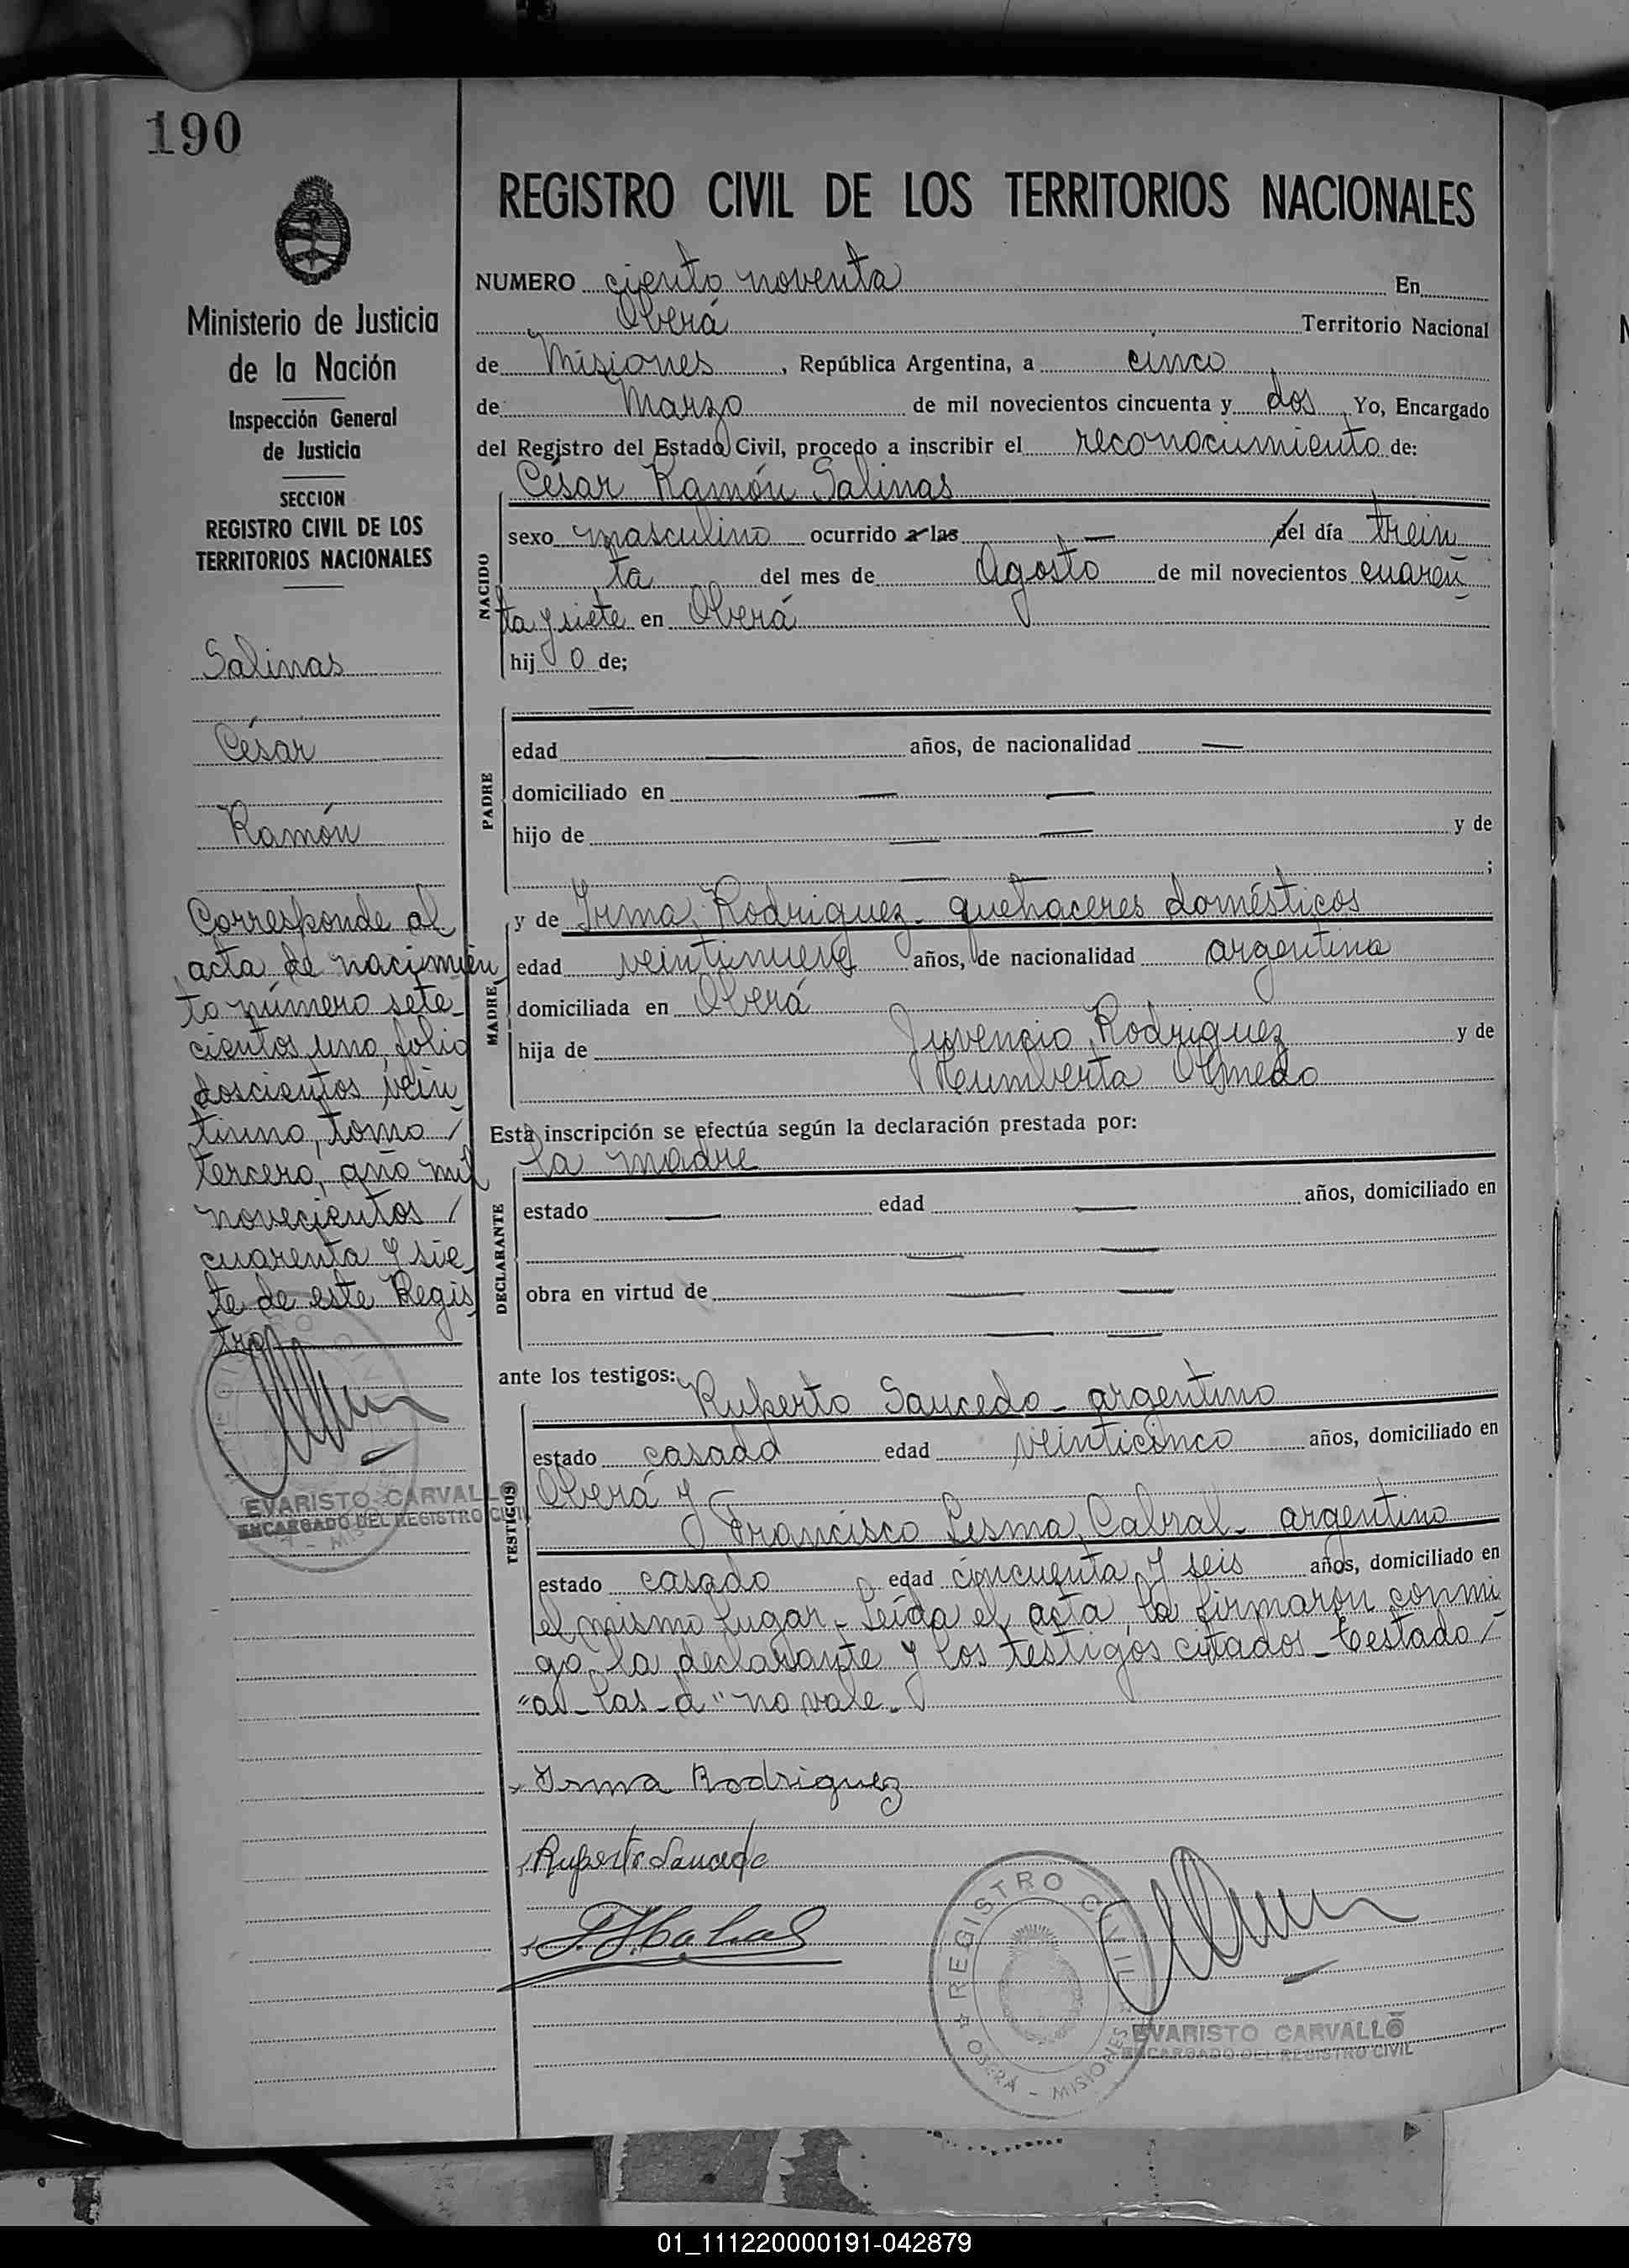 190
Ministerio de Justicia
de la Nación
Inspección General
de Justicia
SECCION
REGISTRO CIVIL DE LOS
TERRITORIOS NACIONALES
Salinas
César
Ramón
Corresponde al
acta de nacimien
to número sete-
cientos uno, folio
doscientos vein
tiuno, tomo /
tercero, año mil
novecientos /
cuarenta y sie
te de este Regis
tro
EVARISTO CARVALLO
ENCARGADO DEL REGISTRO CIVIL
REGISTRO CIVIL DE LOS TERRITORIOS NACIONALES
NUMERO ciento noventa En
Oberá Territorio Nacional
de Misiones, República Argentina, a cinco
de Marzo de mil novecientos cincuenta y dos, Yo, Encargado
del Registro del Estado Civil, procedo a inscribir el reconocimiento de:
César Ramón Salinas
NACIDO
sexo masculino ocurrido a las — del día trein
ta del mes de Agosto de mil novecientos cuaren
ta y siete en Oberá
hij o de;
—
PADRE
edad — años, de nacionalidad —
domiciliado en — —
hijo de — — y de
— — ;
MADRE
y de Irma Rodriguez - quehaceres domésticos
edad veintinueve años, de nacionalidad argentina
domiciliada en Oberá
hija de Juvencio Rodriguez y de
Reumberta Olmedo
Esta inscripción se efectúa según la declaración prestada por:
la madre
DECLARANTE
estado — edad — años, domiciliado en
— —
obra en virtud de — —
— —
ante los testigos:
Ruperto Saucedo - argentino
TESTIGOS
estado casado edad veinticinco años, domiciliado en
Oberá y
Francisco Lesma Cabral - argentino
estado casado edad cincuenta y seis años, domiciliado en
el mismo lugar - Leída el acta, la firmaron conmi
go, la declarante y los testigos citados - Testado /
"a - las - d" no vale -
Irma Rodriguez
Ruperto Saucedo
REGISTRO CIVIL
OBERÁ - MISIONES
EVARISTO CARVALLO
ENCARGADO DEL REGISTRO CIVIL
01_111220000191-042879